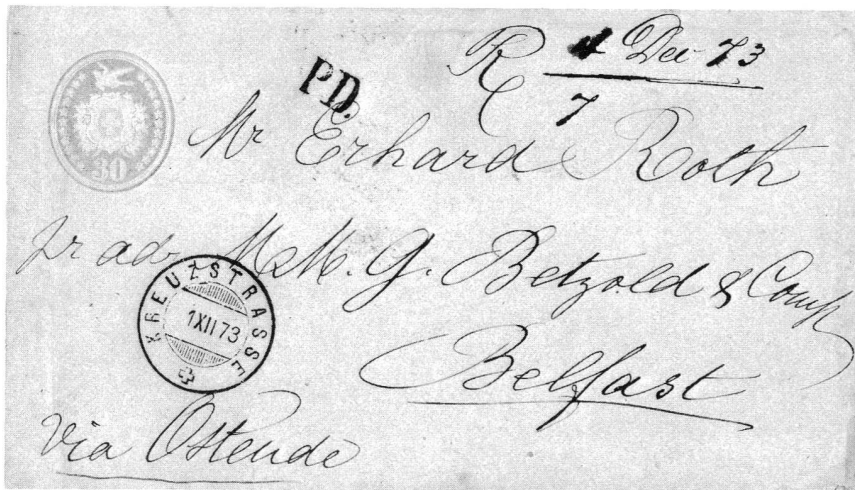 30
P.D.
R 4 Dec 73
7
Mr Erhard Roth
pr ad. MM. G. Betzold & Comp
KREUZSTRASSE
1 XII 73
Belfast
Via Ostende